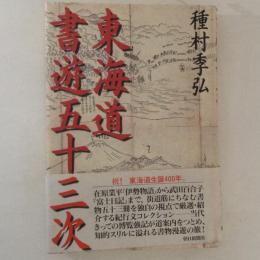 種村季弘
東海道
書遊五十三次
祝! 東海道生誕400年。
在原業平『伊勢物語』から武田百合子
『富士日記』まで、街道筋にちなむ書
物五十三種を独自の視点で厳選・紹
介する紀行文コレクション——当代
きっての博覧強記が道案内をつとめ、
知的スリルに溢れる書物漫遊の旅!
朝日新聞社